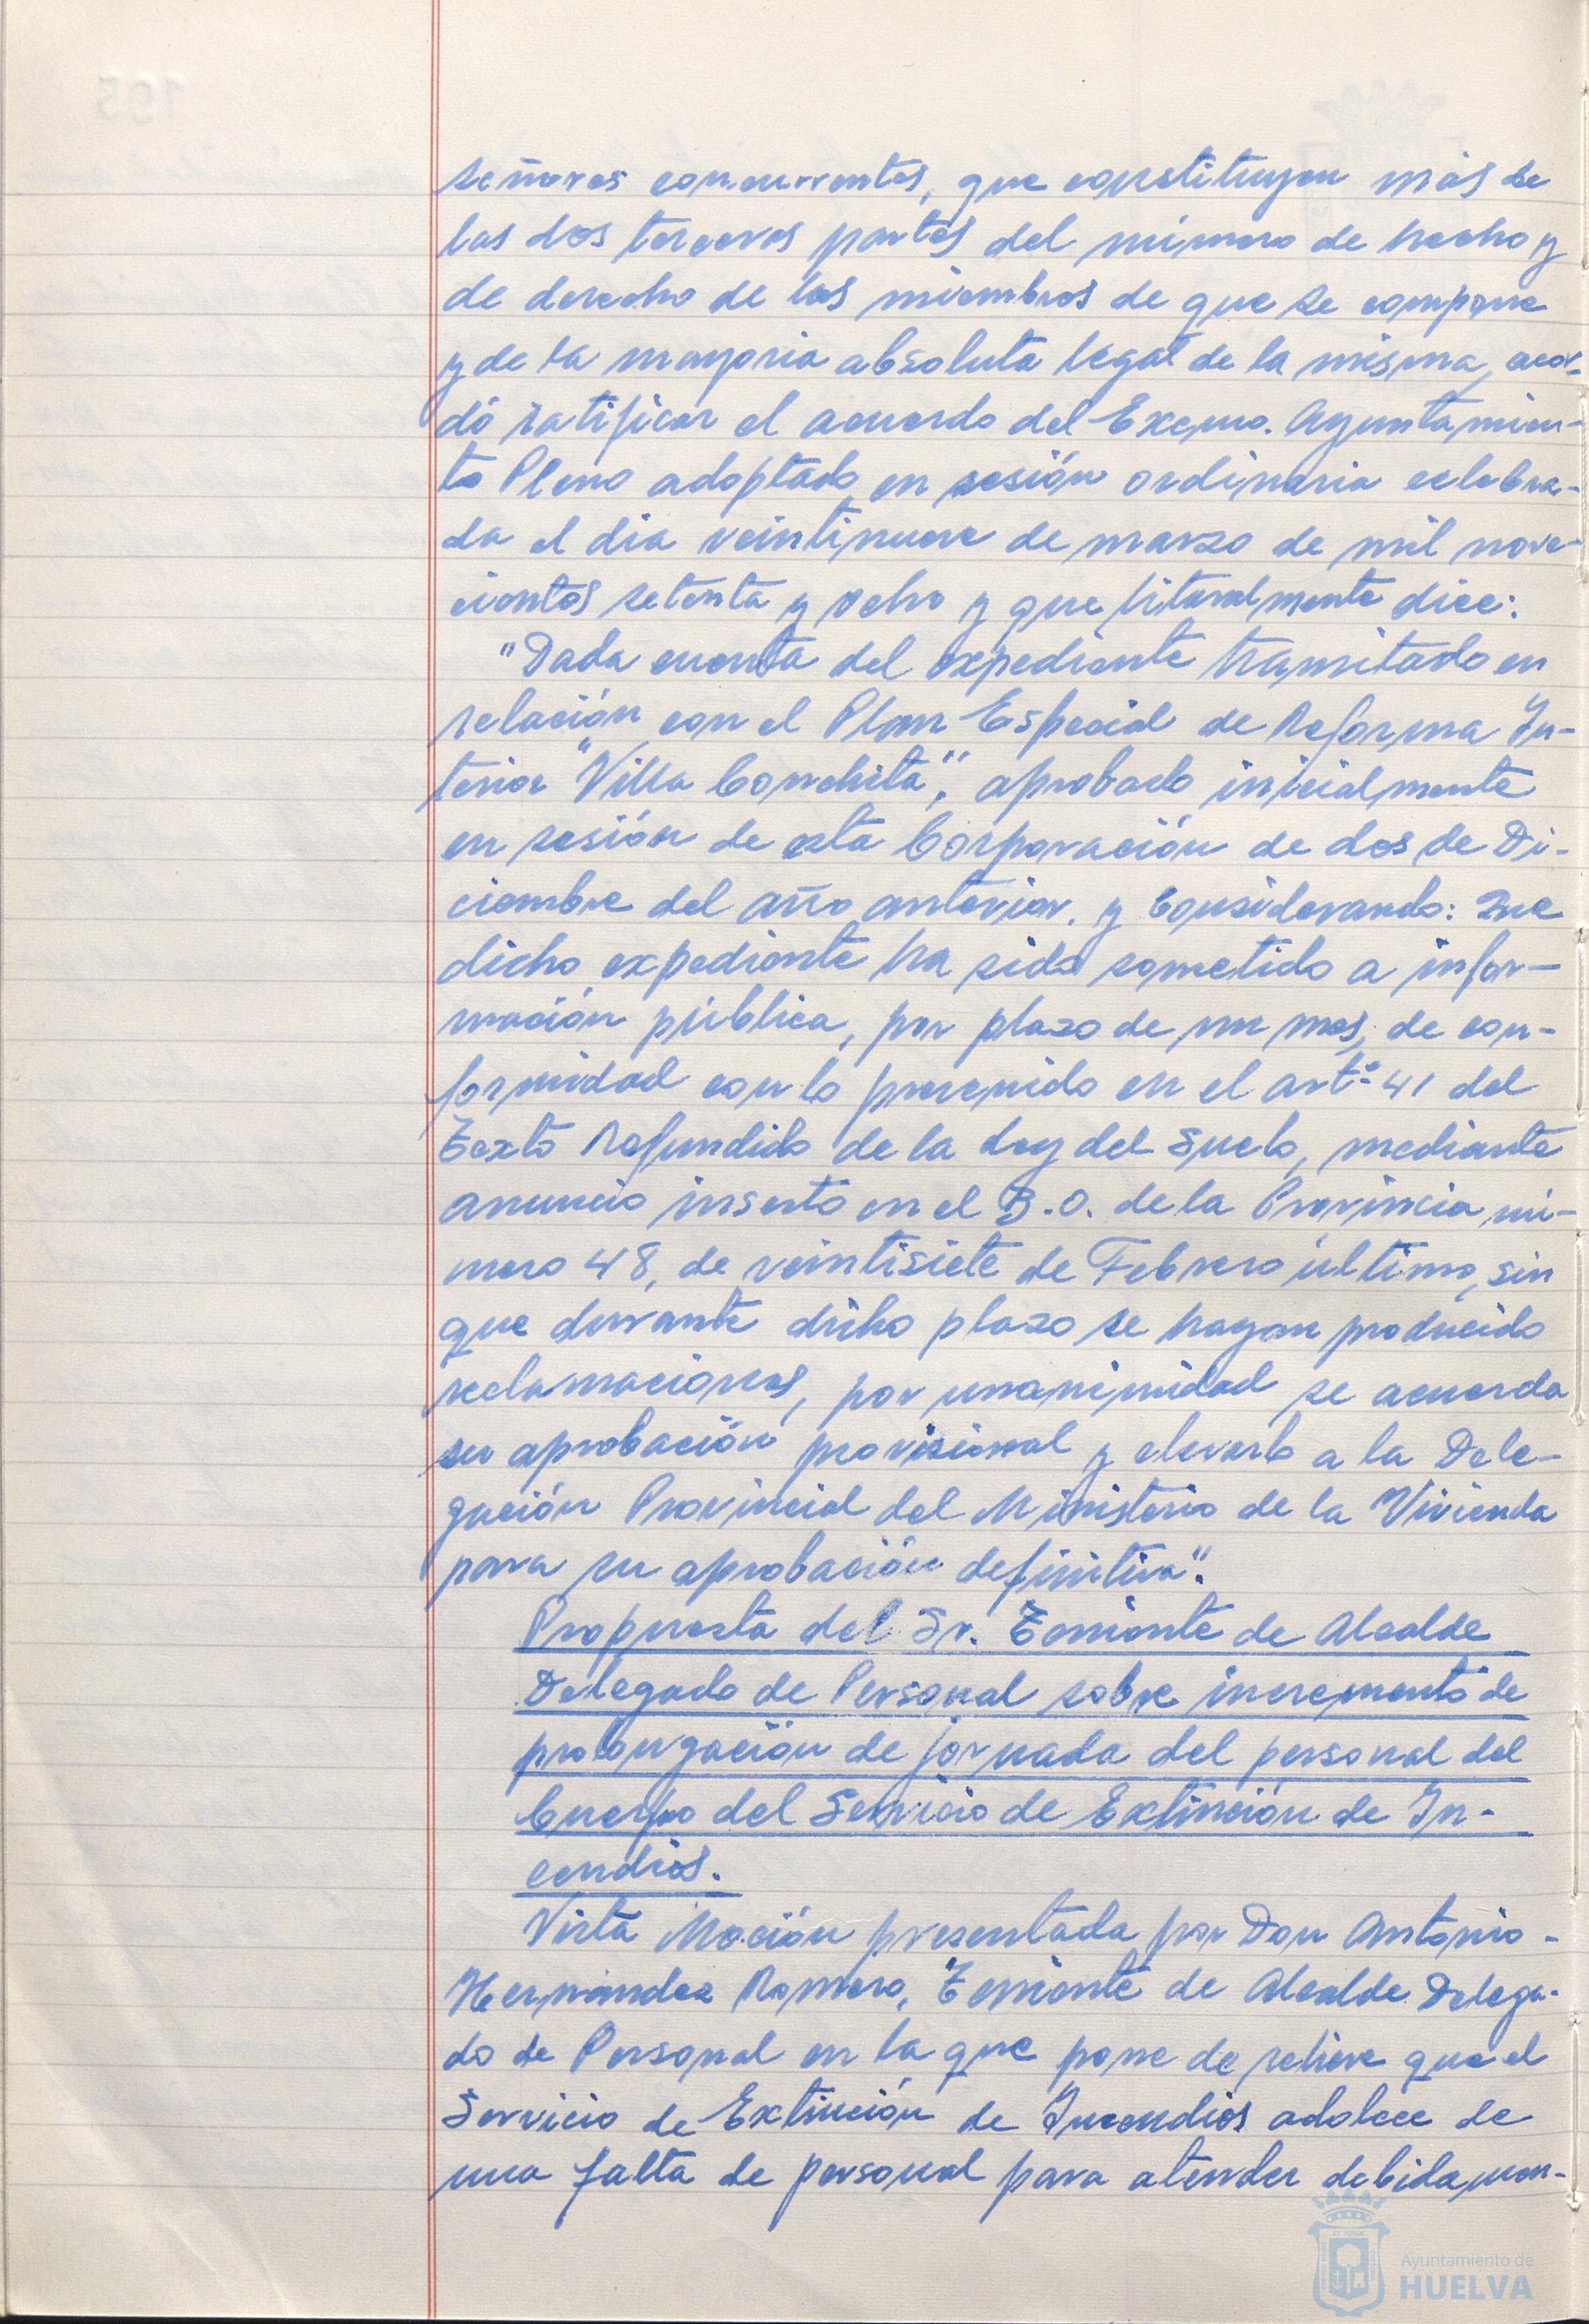 señores concurrentes, que constituyen más de
las dos terceras partes del número de hecho y
de derecho de los miembros de que se compone
y de la mayoria absoluta legal de la misma, acor-
dó ratificar el acuerdo del Excmo. Ayuntamien-
to Pleno adoptado en sesión ordinaria celebra-
da el dia veintinueve de marzo de mil nove-
cientos setenta y ocho y que literalmente dice:
"Dada cuenta del expediente tramitado en
relación con el Plan Especial de Reforma In-
terior "Villa Conchita", aprobado inicialmente
en sesión de esta Corporación de dos de Di-
ciembre del año anterior. y Considerando: Que
dicho expediente ha sido sometido a infor-
mación pública, por plazo de un mes, de con-
formidad con lo prevenido en el artº 41 del
Texto Refundido de la Ley del Suelo, mediante
anuncio inserto en el B.O. de la Provincia nú-
mero 48, de veintisiete de Febrero último, sin
que durante dicho plazo se hayan producido
reclamaciones, por unanimidad se acuerda
su aprobación provisional y elevarlo a la Dele-
gación Provincial del Ministerio de la Vivienda
para su aprobación definitiva".
Propuesta del Sr. Teniente de Alcalde
Delegado de Personal sobre incremento de
prolongación de jornada del personal del
Cuerpo del Servicio de Extinción de In-
cendios.
Vista Moción presentada por Don Antonio-
Hernández Romero, Teniente de Alcalde Delega-
do de Personal en la que pone de relieve que el
Servicio de Extinción de Incendios adolece de
una falta de personal para atender debidamen-
Ayuntamiento de
HUELVA